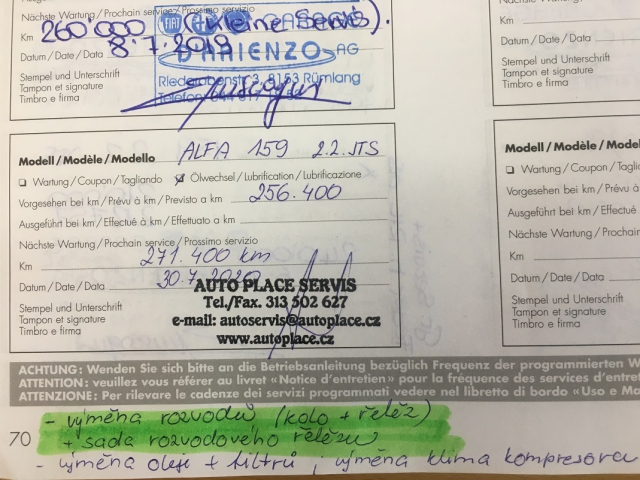 Nächste Wartung / Prochain service / Prossimo servizio
Km 260 000 (kleine Servis).
FIAT
Datum / Date / Data 8.7.2019
D'ARIENZO AG
Stempel und Unterschrift
Tampon et signature
Timbro e firma
Riederobenstr. 3, 8153 Rümlang
Telefon 044 817
Km
Datum / Date / Data
Stempel und Unterschrift
Tampon et signature
Timbro e firma
Modell / Modèle / Modello ALFA 159 2.2. JTS
Wartung / Coupon / Tagliando Ölwechsel / Lubrification / Lubrificazione
Vorgesehen bei km / Prévu à km / Previsto a km 256.400
Ausgeführt bei km / Effectué à km / Effettuato a km
Nächste Wartung / Prochain service / Prossimo servizio
Km 271.400 km
Datum / Date / Data 30.7.2020
Stempel und Unterschrift
Tampon et signature
Timbro e firma
AUTO PLACE SERVIS
Tel./Fax. 313 502 627
e-mail: autoservis@autoplace.cz
www.autoplace.cz
Modell / Modèle / Model
Wartung / Coupon / Tag
Vorgesehen bei km / Prévu
Ausgeführt bei km / Effectué
Nächste Wartung / Prochain
Km
Datum / Date / Data
Stempel und Unterschrift
Tampon et signature
Timbro e firma
ACHTUNG: Wenden Sie sich bitte an die Betriebsanleitung bezüglich Frequenz der programmierten W
ATTENTION: veuillez vous référer au livret «Notice d'entretien» pour la fréquence des services d'entret
ATTENZIONE: Per rilevare le cadenze dei servizi programmati vedere nel libretto di bordo «Uso e Ma
- výměna rozvodů (kolo + řetěz)
+ sada rozvodového řetězu
70
- výměna oleje + filtrů, výměna klima kompresoru